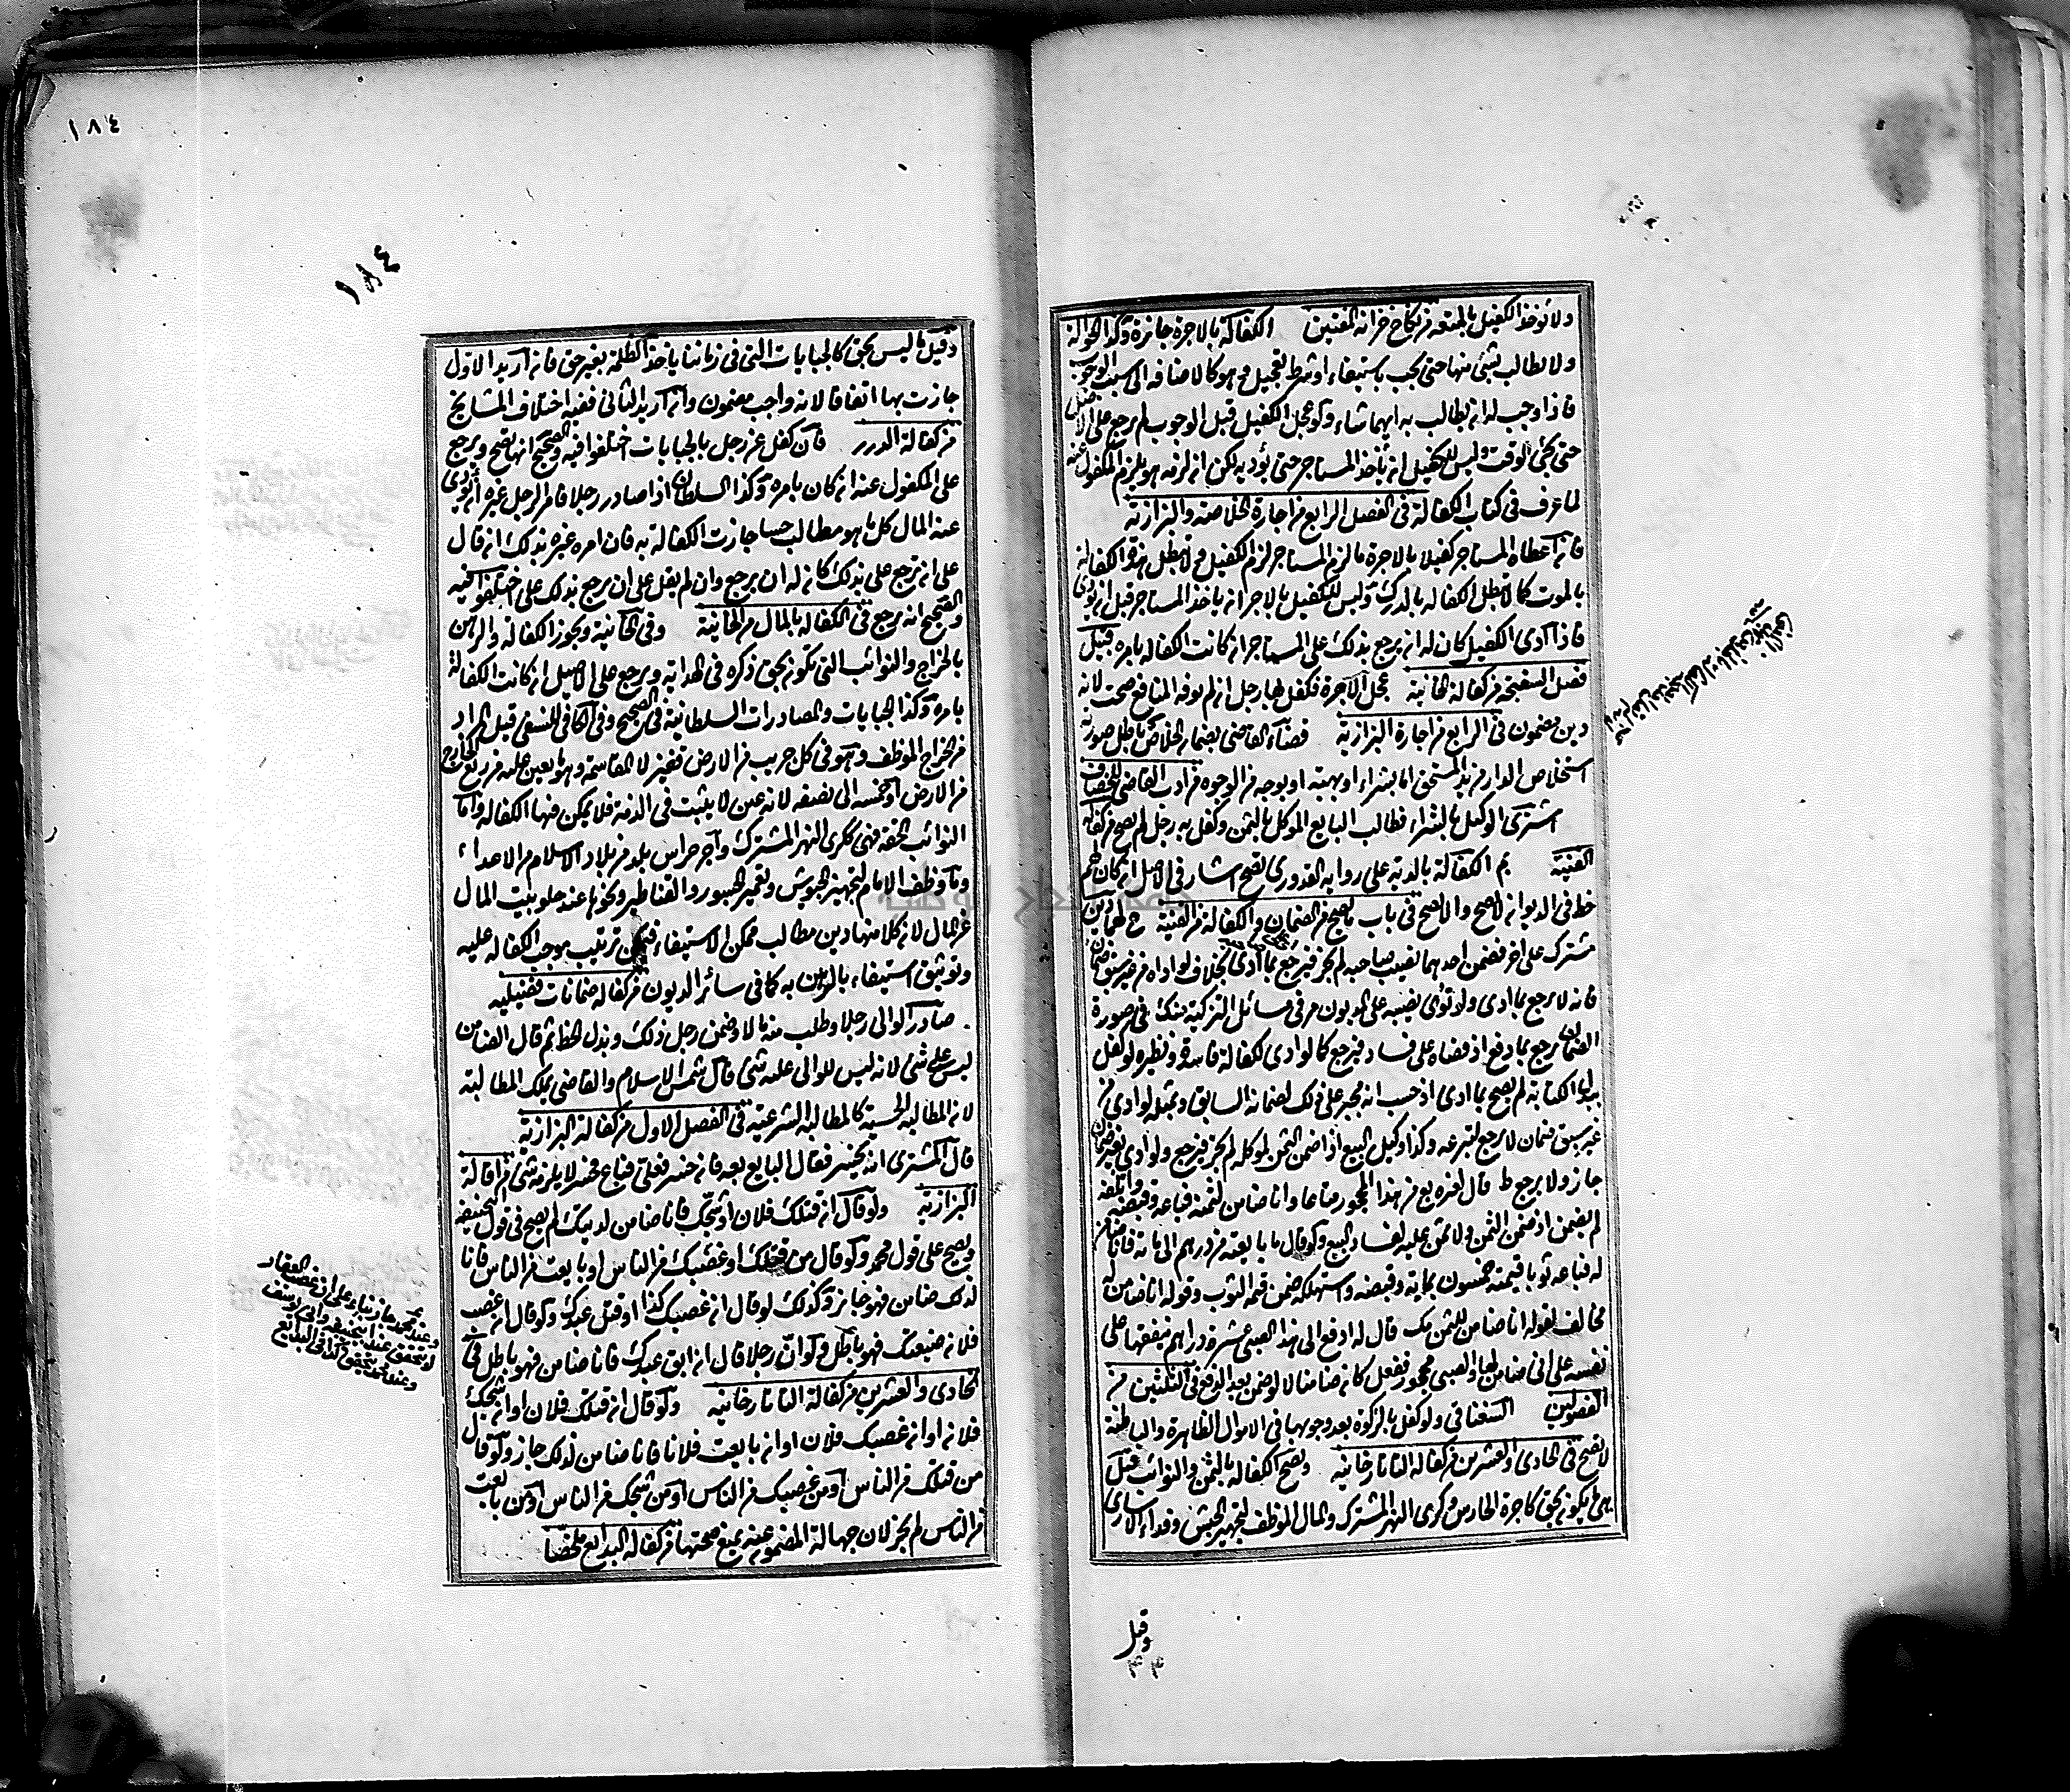 ولا يؤخذ الكفيل بالمتعة من نكاح خزانة المفتين الكفالة بالاجرة جائزة وكذا الحوالة
ولا يطالب بشئ منها حتى يجب باستيفاء او شرط تعجيل وهو كالاضافة الى سبب الوجوب
فاذا وجب له ان يطالب به ايهما شاء ولو عجل الكفيل قبل الوجوب لم يرجع على الاصيل
حتى يجئ الوقت وليس للكفيل ان يأخذ المستاجر حتى يؤديه لكن ان لزمه هو يلزم المكفول عنه
لما عرف في كتاب الكفالة في الفصل الرابع من اجارة الخلاصة والبزازية
فان اعطاه المستاجر كفيلا بالاجرة ما لزم المستاجر لزم الكفيل ولا تبطل هذه الكفالة
بالموت كما لا تبطل الكفالة بالدرك وليس للكفيل بالاجر ان يأخذ المستاجر قبل ان يؤدي
فاذا ادى الكفيل كان له ان يرجع بذلك على المستاجر ان كانت الكفالة بامره قبيل
فصل السفتجة من كفالة الخانية عجل الاجرة فكفل لها رجل ان لم يوفه المنافع صحت لانه
دين مضمون في الرابع من اجارة البزازية قضاء القاضي بضمان الخلاص باطل صورته
استخلاص الدار من يد المستحق اما بشراء او بهبة او بوجه من الوجوه من ادب القاضي للخصاف
اشترى الوكيل بالشراء فطالب البايع الموكل بالثمن وكفل به رجل لم يصح من كفالة
القنية بم الكفالة بالدية على رواية القدوري تصح اشار في الاصل ان كان لهم
خط في الديوان لا تصح والاصح في باب ما يصح من الضمان والكفالة من القنية ح لهما دين
مشترك على اخر فضمن احدهما نصيب صاحبه لم يجز فيرجع بما ادى بخلاف لو اداه من غير سبق ضمان
فانه لا يرجع بما ادى ولو توى نصيبه على المديون مر في مسائل التركة تمسك في صورة
الضمان يرجع بما دفع اذ قضاه على فساد فيرجع كما لو ادى لكفالة فاسدة ونظيره لو كفل
ببدل الكتابة لم يصح بما ادى اذ حسب انه مجبر على ذلك لضمانه السابق وبمثله لو ادى من
غير سبق ضمان لا يرجع لتبرعه وكذا وكيل البيع اذا ضمن الثمن لموكله لم يجز فيرجع ولو ادى بغير ضمان
جاز ولا يرجع ط قال لغيره بع من هذا المحجور متاعا وانا ضامن لثمنه فباعه وقبضه واتلفه
لم يضمن اذ ضمن الثمن ولا ثمن عليه لفساد البيع ولو قال ما بايعته من درهم الى مائة فانا ضامن
له فباعه ثوبا قيمته خمسون بمائة وقبضه واستهلكه ضمن قيمة الثوب وقوله انا ضامن له
مخالف لقوله انا ضامن للثمن مك قال له ادفع الى هذا الصبي عشرة دراهم ينفقها على
نفسه على اني ضامن لها والصبي محجور ففعل كان ضامنا لا لو ضمن بعد الدفع في الثلثين من
الفصولين السغناقي ولو كفل بالزكوة بعد وجوبها في الاموال الظاهرة والباطنة
لا تصح في الحادي والعشرين من كفالة التاتارخانية وتصح الكفالة بالثمن والنوائب قيل
هي ما يكون بحق كاجرة الحارس وكري النهر المشترك والمال الموظف لتجهيز الجيش وفداء الاسارى
وقيل
١٨٤
١٨٤
وقيل ما ليس بحق كالجبايات التي في زماننا ياخذ الظلمة بغير حق فان اريد الاول
جازت بها اتفاقا لانه واجب مضمون وان اريد الثاني ففيه اختلاف المشايخ
من كفالة الدرر فان كفل عن رجل بالجبايات اختلفوا فيه والصحيح انها تصح ويرجع
على المكفول عنه ان كان بامره وكذا السلطان اذا صادر رجلا فامر الرجل غيره ان يؤدي
عنه المال كل ما هو مطالب حسا جازت الكفالة به فان امره غيره بذلك ان قال
على ان ترجع علي بذلك كان له ان يرجع وان لم يقل على ان ترجع بذلك علي اختلفوا فيه
والصحيح انه يرجع في الكفالة بالمال من الخانية وفي الخانية ويجوز الكفالة والرهن
بالخراج والنوائب التي تكون بحق ذكره في الهداية ويرجع على الاصيل ان كانت الكفالة
بامره وكذا الجبايات والمصادرات السلطانية في الصحيح وفي الكافي للنسفي قيل المراد
من الخراج الموظف وهو في كل جريب من الارض قفيز لا المقاسمة وهو ما يعين عليه من ربع الخارج
من الارض او خمسه الى نصفه لانه عين لا يثبت في الذمة فلا يمكن فيها الكفالة واما
النوائب الحقة فهي ككري النهر المشترك واجر حراس بلد من بلاد الاسلام من الاعداء
وما وظف الامام لتجهيز الجيوش وتعمير الجسور والقناطير ونحوها عند خلو بيت المال
عن المال لان كلا منها دين مطالب ممكن الاستيفاء فيمكن ترتيب موجب الكفالة عليه
وتوثيق استيفاء بالرهن به كما في سائر الديون من كفالة ضمانات فضيلية
صادر الوالي رجلا وطلب منه مالا وضمن رجل ذلك وبذل الخط ثم قال الضامن
ليس علي شئ لانه ليس للوالي عليه شئ قال شمس الاسلام والقاضي يملك المطالبة
لان المطالبة الحسية كالمطالبة الشرعية في الفصل الاول من كفالة البزازية
قال المشتري انه يخسر فقال البايع بعه فان خسر فعلي فباع فخسر لا يلزمه شئ من اقالة
البزازية ولو قال ان قتلك فلان او شجك فانا ضامن لديتك لم يصح في قول ابي حنيفة
ويصح على قول محمد ولو قال من قتلك او غصبك من الناس او بايعت من الناس فانا
لذلك ضامن فهو جائز وكذلك لو قال ان غصبك كذا او قتل عبدك ولو قال ان غصب
فلان ضيعتك فهو باطل ولو ان رجلا قال ان ابق عبدك فانا ضامن فهو باطل في
الحادي والعشرين من كفالة التاتارخانية ولو قال ان قتلك فلان او ان شجك
فلان او ان غصبك فلان او ان بايعت فلانا فانا ضامن لذلك جاز ولو قال
من قتلك من الناس او من غصبك من الناس او من شجك من الناس او من بايعت
من الناس لم يجز لان جهالة المضمون عنه يمنع صحتها من كفالة البدايع ملخصا
وعند محمد جاز بناء على ان غصب العقار
لا يتحقق عند ابي حنيفة وابي يوسف
وعند محمد يتحقق كذا في البدايع